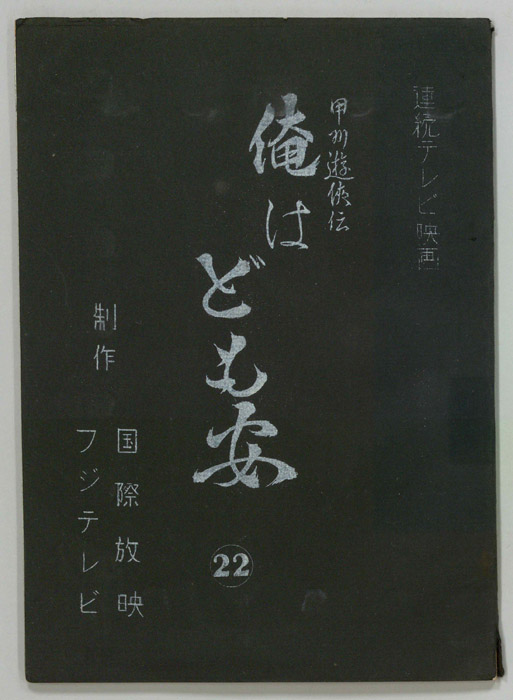 連続テレビ映画
甲州遊侠伝
俺は
ども安
22
制作
国際放映
フジテレビ